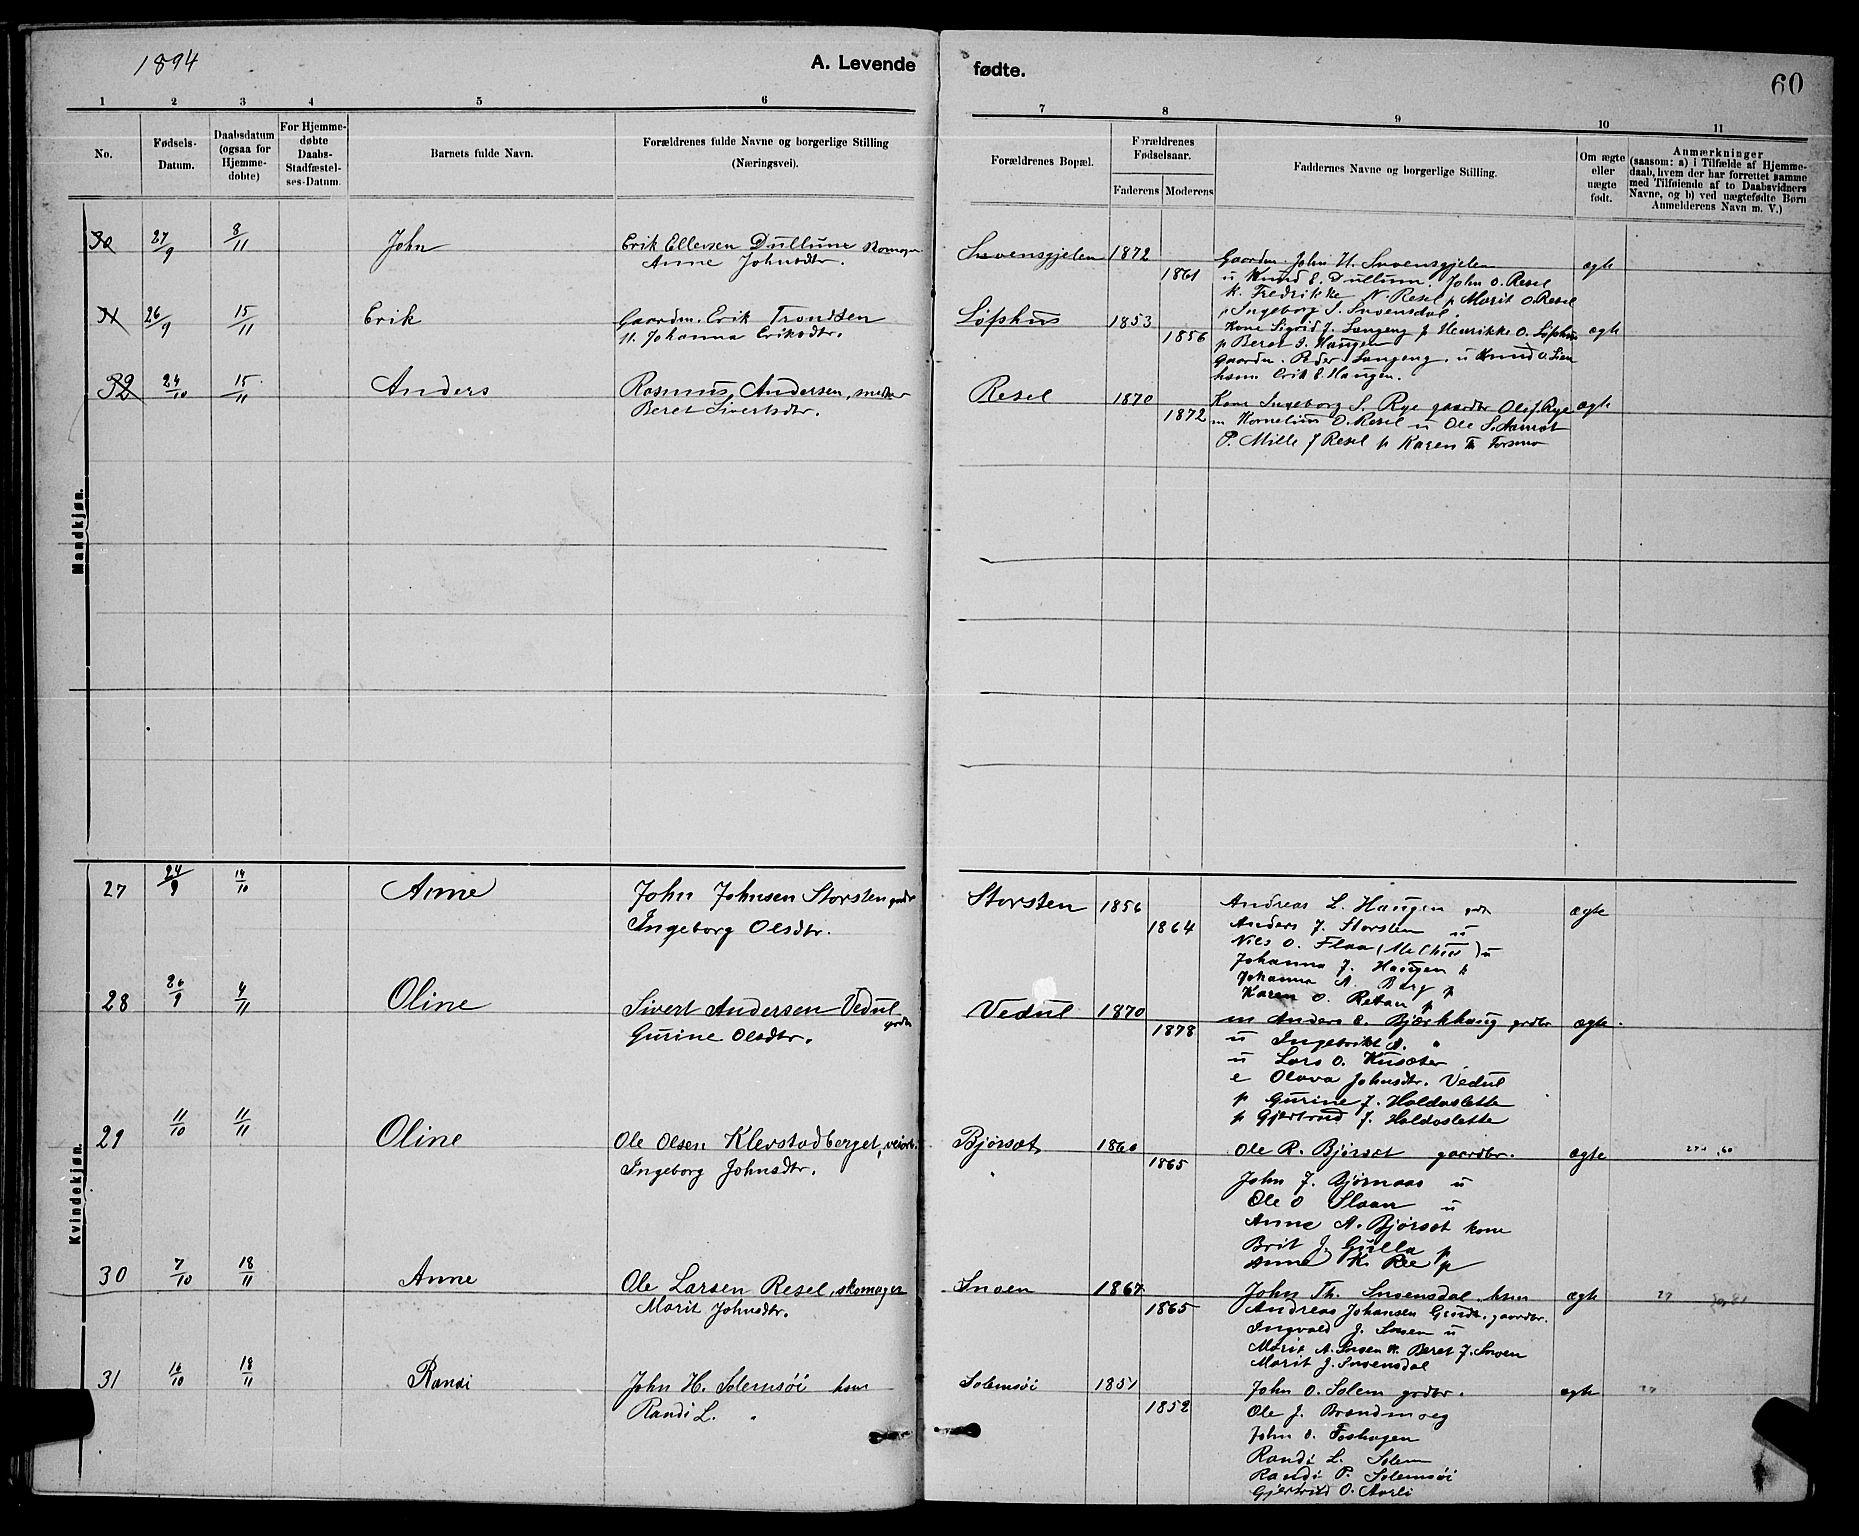 1894
A. Levende fødte.
60
1 2 3 4 5 6 7 8 9 10 11
No.
Fødsels-Datum.
Daabsdatum (ogsaa for Hjemme-døbte)
For Hjemme-døbte Daabs-Stadfæstel-ses-Datum.
Barnets fulde Navn.
Forældrenes fulde Navne og borgerlige Stilling (Næringsvei).
Forældrenes Bopæl.
Forældrenes Fødselsaar.
Faderens Moderens
Faddernes Navne og borgerlige Stilling.
Om ægte eller uægte født.
Anmærkninger (saasom: a) i Tilfælde af Hjemme-daab, hvem der har forrettet samme med Tilføiende af to Daabsvidners Navne, og b) ved uægtefødte Børn Anmelderens Navn m. V.)
Mandkjøn.
30 27/9 8/11 John Erik Ellevsen Dullum skomager
Anne Johnsdtr.
Snoensgjelen 1872 1861
Gaardm. John H. Snoensgjelen
u Knud E. Dullum. John O. Resel
k. Fredrikke N. Resel p Marit O. Resel
p Ingeborg S. Snoensdal.
ægte
31 26/9 15/11 Erik Gaardm. Erik Trondsen
H. Johanna Eriksdtr.
Løfshus 1853 1856
Kone Sigrid J. Langeng p Henrikke O. Løfshus
p Beret I. Haugen
Gaardm. Peder Langeng. u Knud O. Lien
husm Erik E. Haugen.
ægte
32 24/10 15/11 Anders Rasmus Andersen, snedker
Beret Sivertsdtr.
Resel 1870 1872
Kone Ingeborg S. Rye gaardbr Ole J. Rye
m Kornelius O. Resel u Ole S. Aamot
P. Mille J Resel p Karen Th Forsmo
ægte
Kvindekjøn.
27 24/9 14/10 Anne John Johnsen Storsten grdbr
Ingeborg Olsdtr.
Storsten 1856 1864
Andreas L. Haugen grdb
Anders J. Storsten u
Nils O. Flaa (Melhus) u
Johanna J. Haugen k
Johanna A. Berg p
Karen O. Retan p
ægte
28 26/9 4/11 Oline Sivert Andersen Vedul grdbr
Gurine Olsdtr.
Vedul 1870 1878
m Anders E. Bjørkhaug grdbr
u Ingebrikt A. "
u Lars O. Kusæter
e Olava Johnsdtr. Vedul
p Gurine J. Holdoslette
p Gjertrud J. Holdoslette
ægte.
29 11/10 11/11 Oline Ole Olsen Klevstadberget, veiarb.
Ingeborg Johnsdtr.
Bjørsæt 1860 1865
"
Ole R. Bjørsæt gaardbr.
John J. Bjørnaas u
Ole O Slaan u
Anne A. Bjørsæt kone
Brit J. Gulla p
Anne K. Ree p
ægte
30 7/10 18/11 Anne Ole Larsen Resel, skomager
Marit Johnsdtr.
Snoen 1867 1865
John Th. Snoensdal husm
Andreas Johansen gaardbr.
Ingvald J. Snoen u
Marit A. Snoen k. Beret J. Snoen
Marit J. Snoensdal
ægte
31 16/10 18/11 Randi John H. Solemsøi husm
Randi L. "
Solemsøi 1851 1852
John O. Solem grdbr.
Ole J. Brandmoeg
John O. Foshagen
Randi L. Solem
Randi P. Solemsøi
Gjertrud O. Aarli
ægte